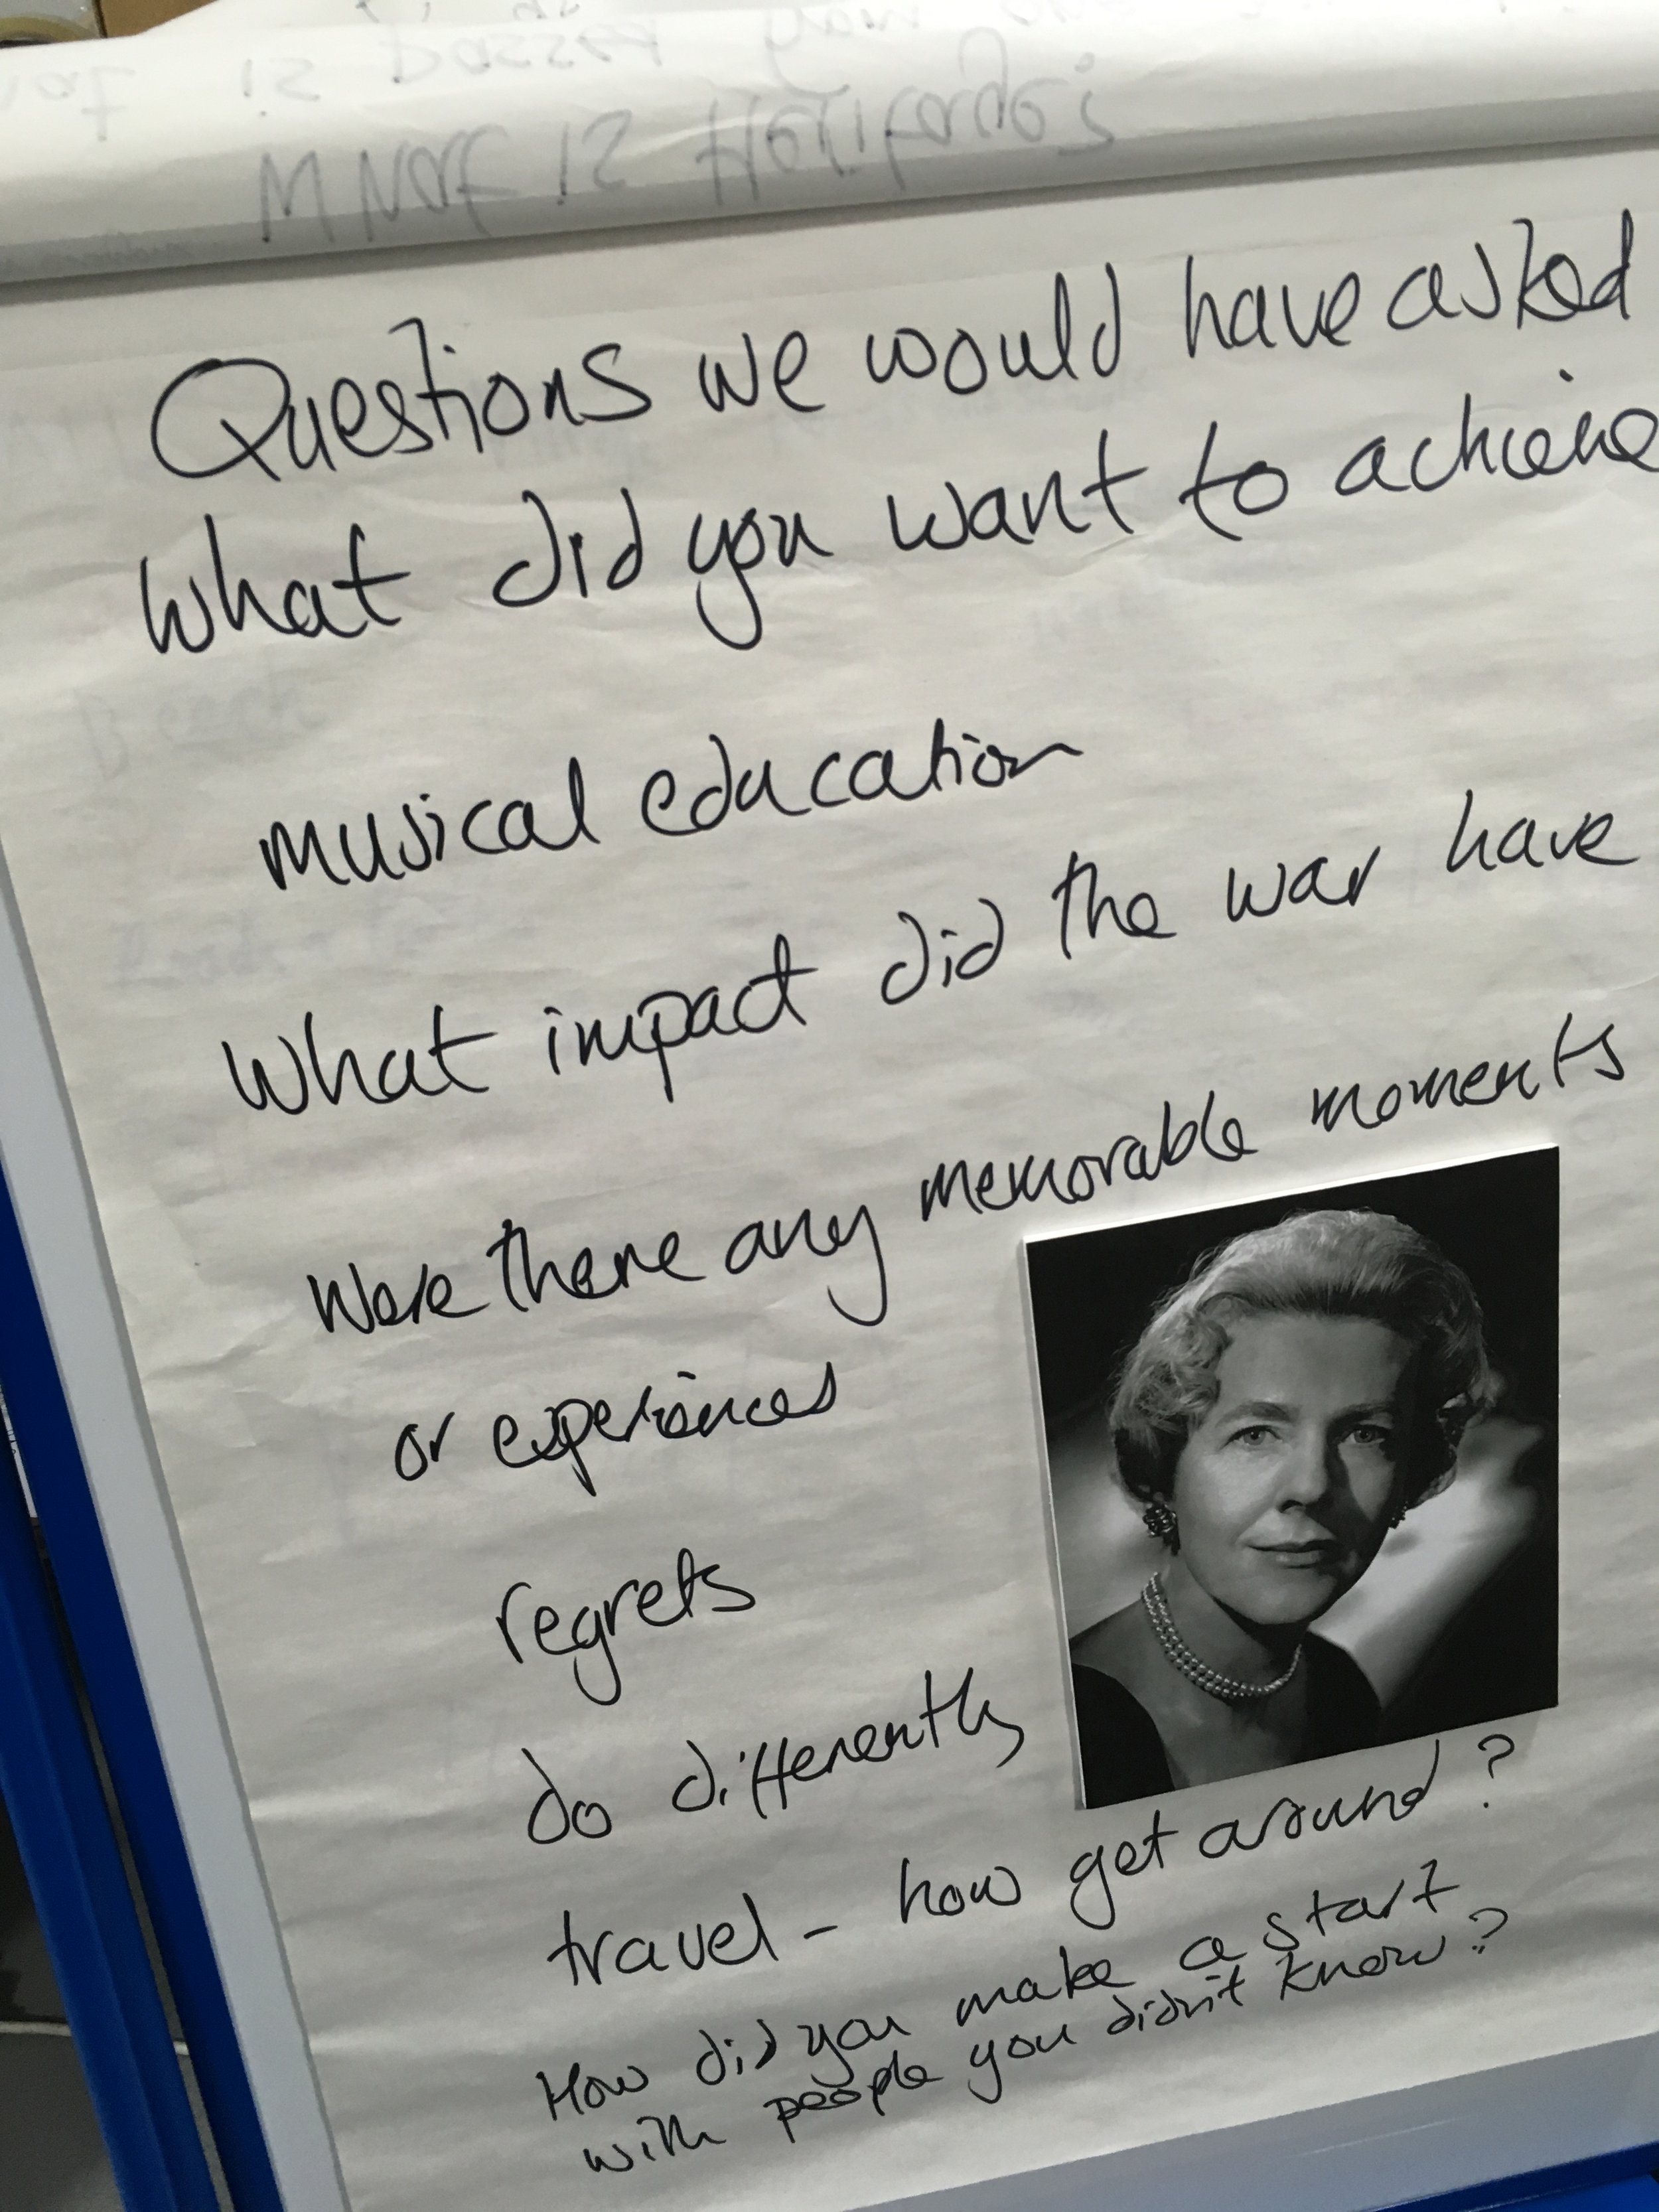 What is Heritage?
Questions we would have asked
What did you want to achieve
musical education
What impact did the war have
Were there any memorable moments
or experiences
regrets
do differently
travel - how get around?
How did you make a start
with people you didn't know?